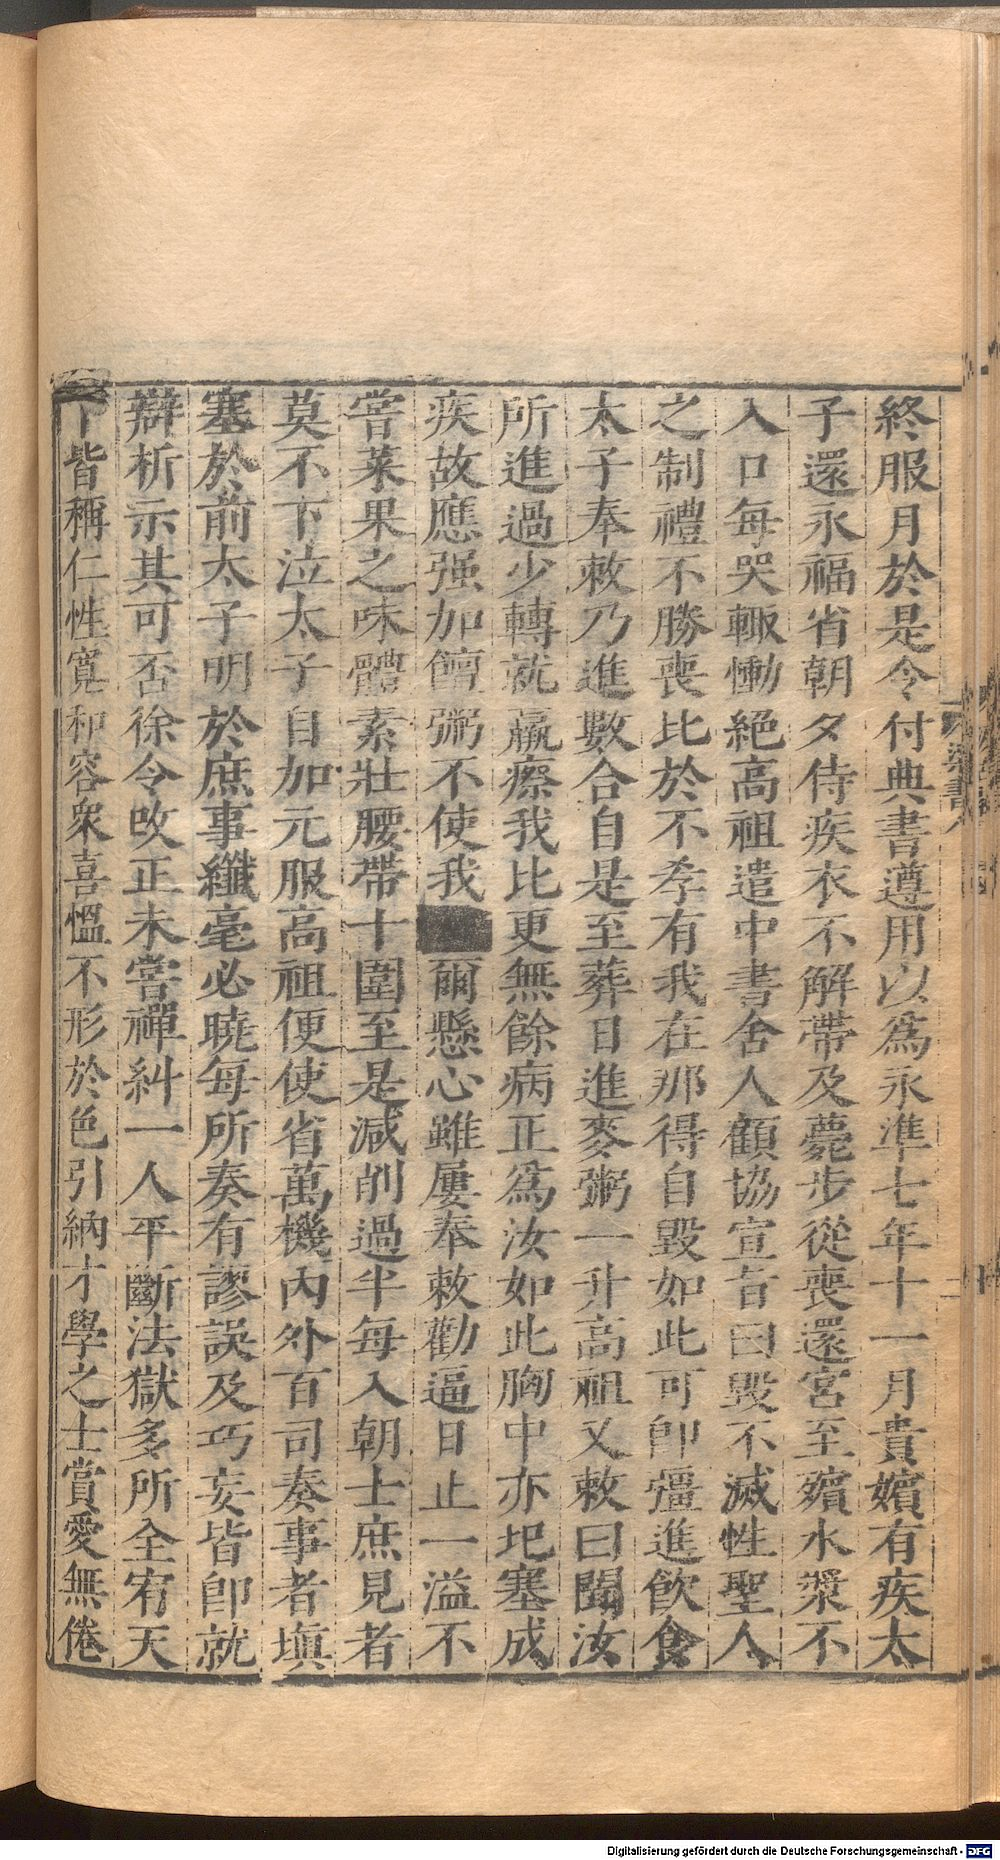 終服月於是令付典書遵用以爲永準七年十一月貴嬪有疾太
子還永福省朝夕侍疾衣不解帶及薨步從喪還宮至殯水漿不
入口每哭輙慟絕高祖遣中書舍人顧協宣旨曰毀不滅性聖人
之制禮不勝喪比於不孝有我在那得自毀如此可卽彊進飮食
太子奉敕乃進數合自是至葬日進麥粥一升高祖又敕曰聞汝
所進過少轉就羸瘵我比更無餘病正爲汝如此胸中亦圯塞成
疾故應强加饘粥不使我爾懸心雖屢奉敕勸逼日止一溢不
嘗菜果之味體素壯腰帶十圍至是減削過半每入朝士庶見者
莫不下泣太子自加元服高祖便使省萬機內外百司奏事者塡
塞於前太子明於庶事纖毫必曉每所奏有謬誤及巧妄皆卽就
辯析示其可否徐令改正未嘗禪糾一人平斷法獄多所全宥天
下皆稱仁性寬和容衆喜慍不形於色引納才學之士賞愛無倦
梁書八
Digitalisierung gefördert durch die Deutsche Forschungsgemeinschaft - DFG